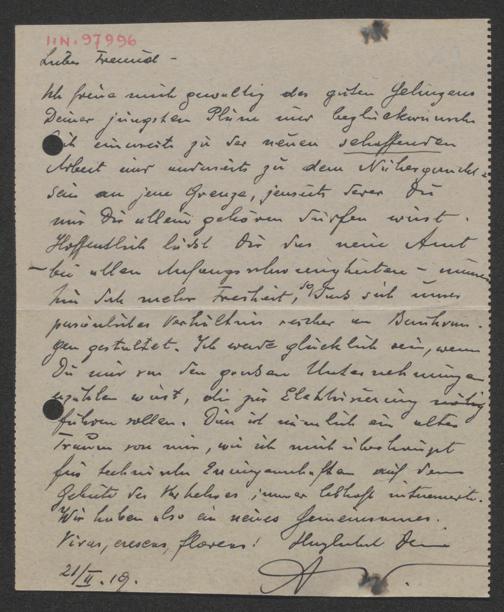 I.N. 97996
Lieber Freund –
Ich freue mich gewaltig des guten Gelingens
Deiner jüngsten Pläne und beglückwünsche
Dich einerseits zu der neuen schaffenden
Arbeit und anderseits zu dem Nähergerückt
sein an jene Grenze, jenseits derer Du
nur Dir allein gehören dürfen wirst.
Hoffentlich läßt Dir das neue Amt
– bei allen Anfangsschwierigkeiten –
hin doch mehr Freiheit, so daß sich unser
persönliches Verhältnis reicher an Berührun-
gen gestaltet. Ich werde glücklich sein, wenn
Du mir von den großen Unternehmungen
erzählen wirst, die zur Elektrisierung
führen sollen. Dies ist nämlich ein alter
Traum von mir, wie ich mich überhaupt
für technische Errungenschaften auf dem
Gebiete des Verkehres immer lebhaft interessierte.
Wir haben also ein neues Gemeinsames.
Vivas, crescas, floreas! Herzlichst Dein
21/II. 19.
A W.